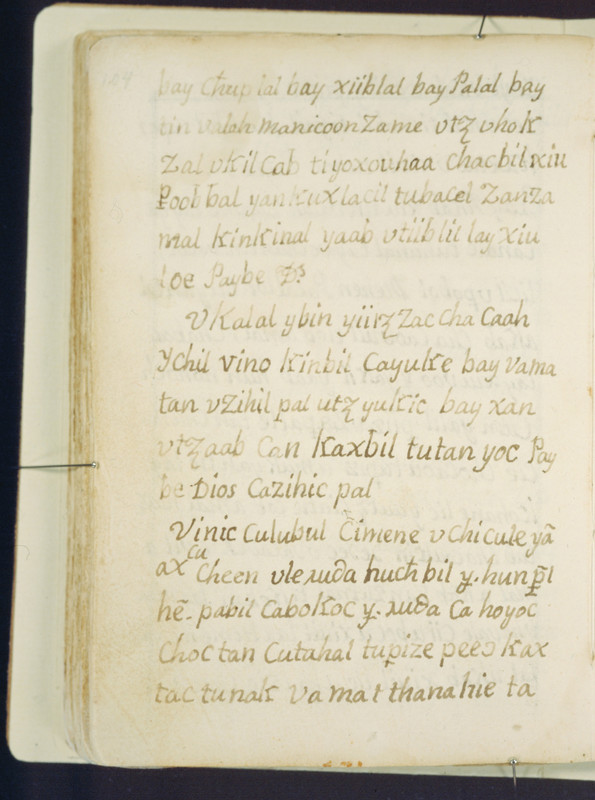 bay chup lal bay xiiblal bay Palal bay
tin manicoon Zame vtz vhok
Zal vKil Cab ti yoxouhaa chacbil xiu
Poob bal yan kuxlacil tubacel ZanZa
mal kinkinal yaab vtiiblil lay xiu
loe Paybe Ds
VKalal ybin yiitz Zac Cha Caah
Ychil vino Kinbil Cayuke bay vama
tan vZihil pal utz yukic bay xan
vtzaab Can Kaxbil tutan yoc Pay
be Dios Cazihic pal
Vinic Culubul Cimene v Chicule yã
cu
ax Cheen vle ɹuda huchbil y. hun pl
hẽ- pabil Cabokoc y. ɹuda Ca hoyoc
Choctan Cutahal tupize peeɔ kax
tac tunak va mat thanahie ta